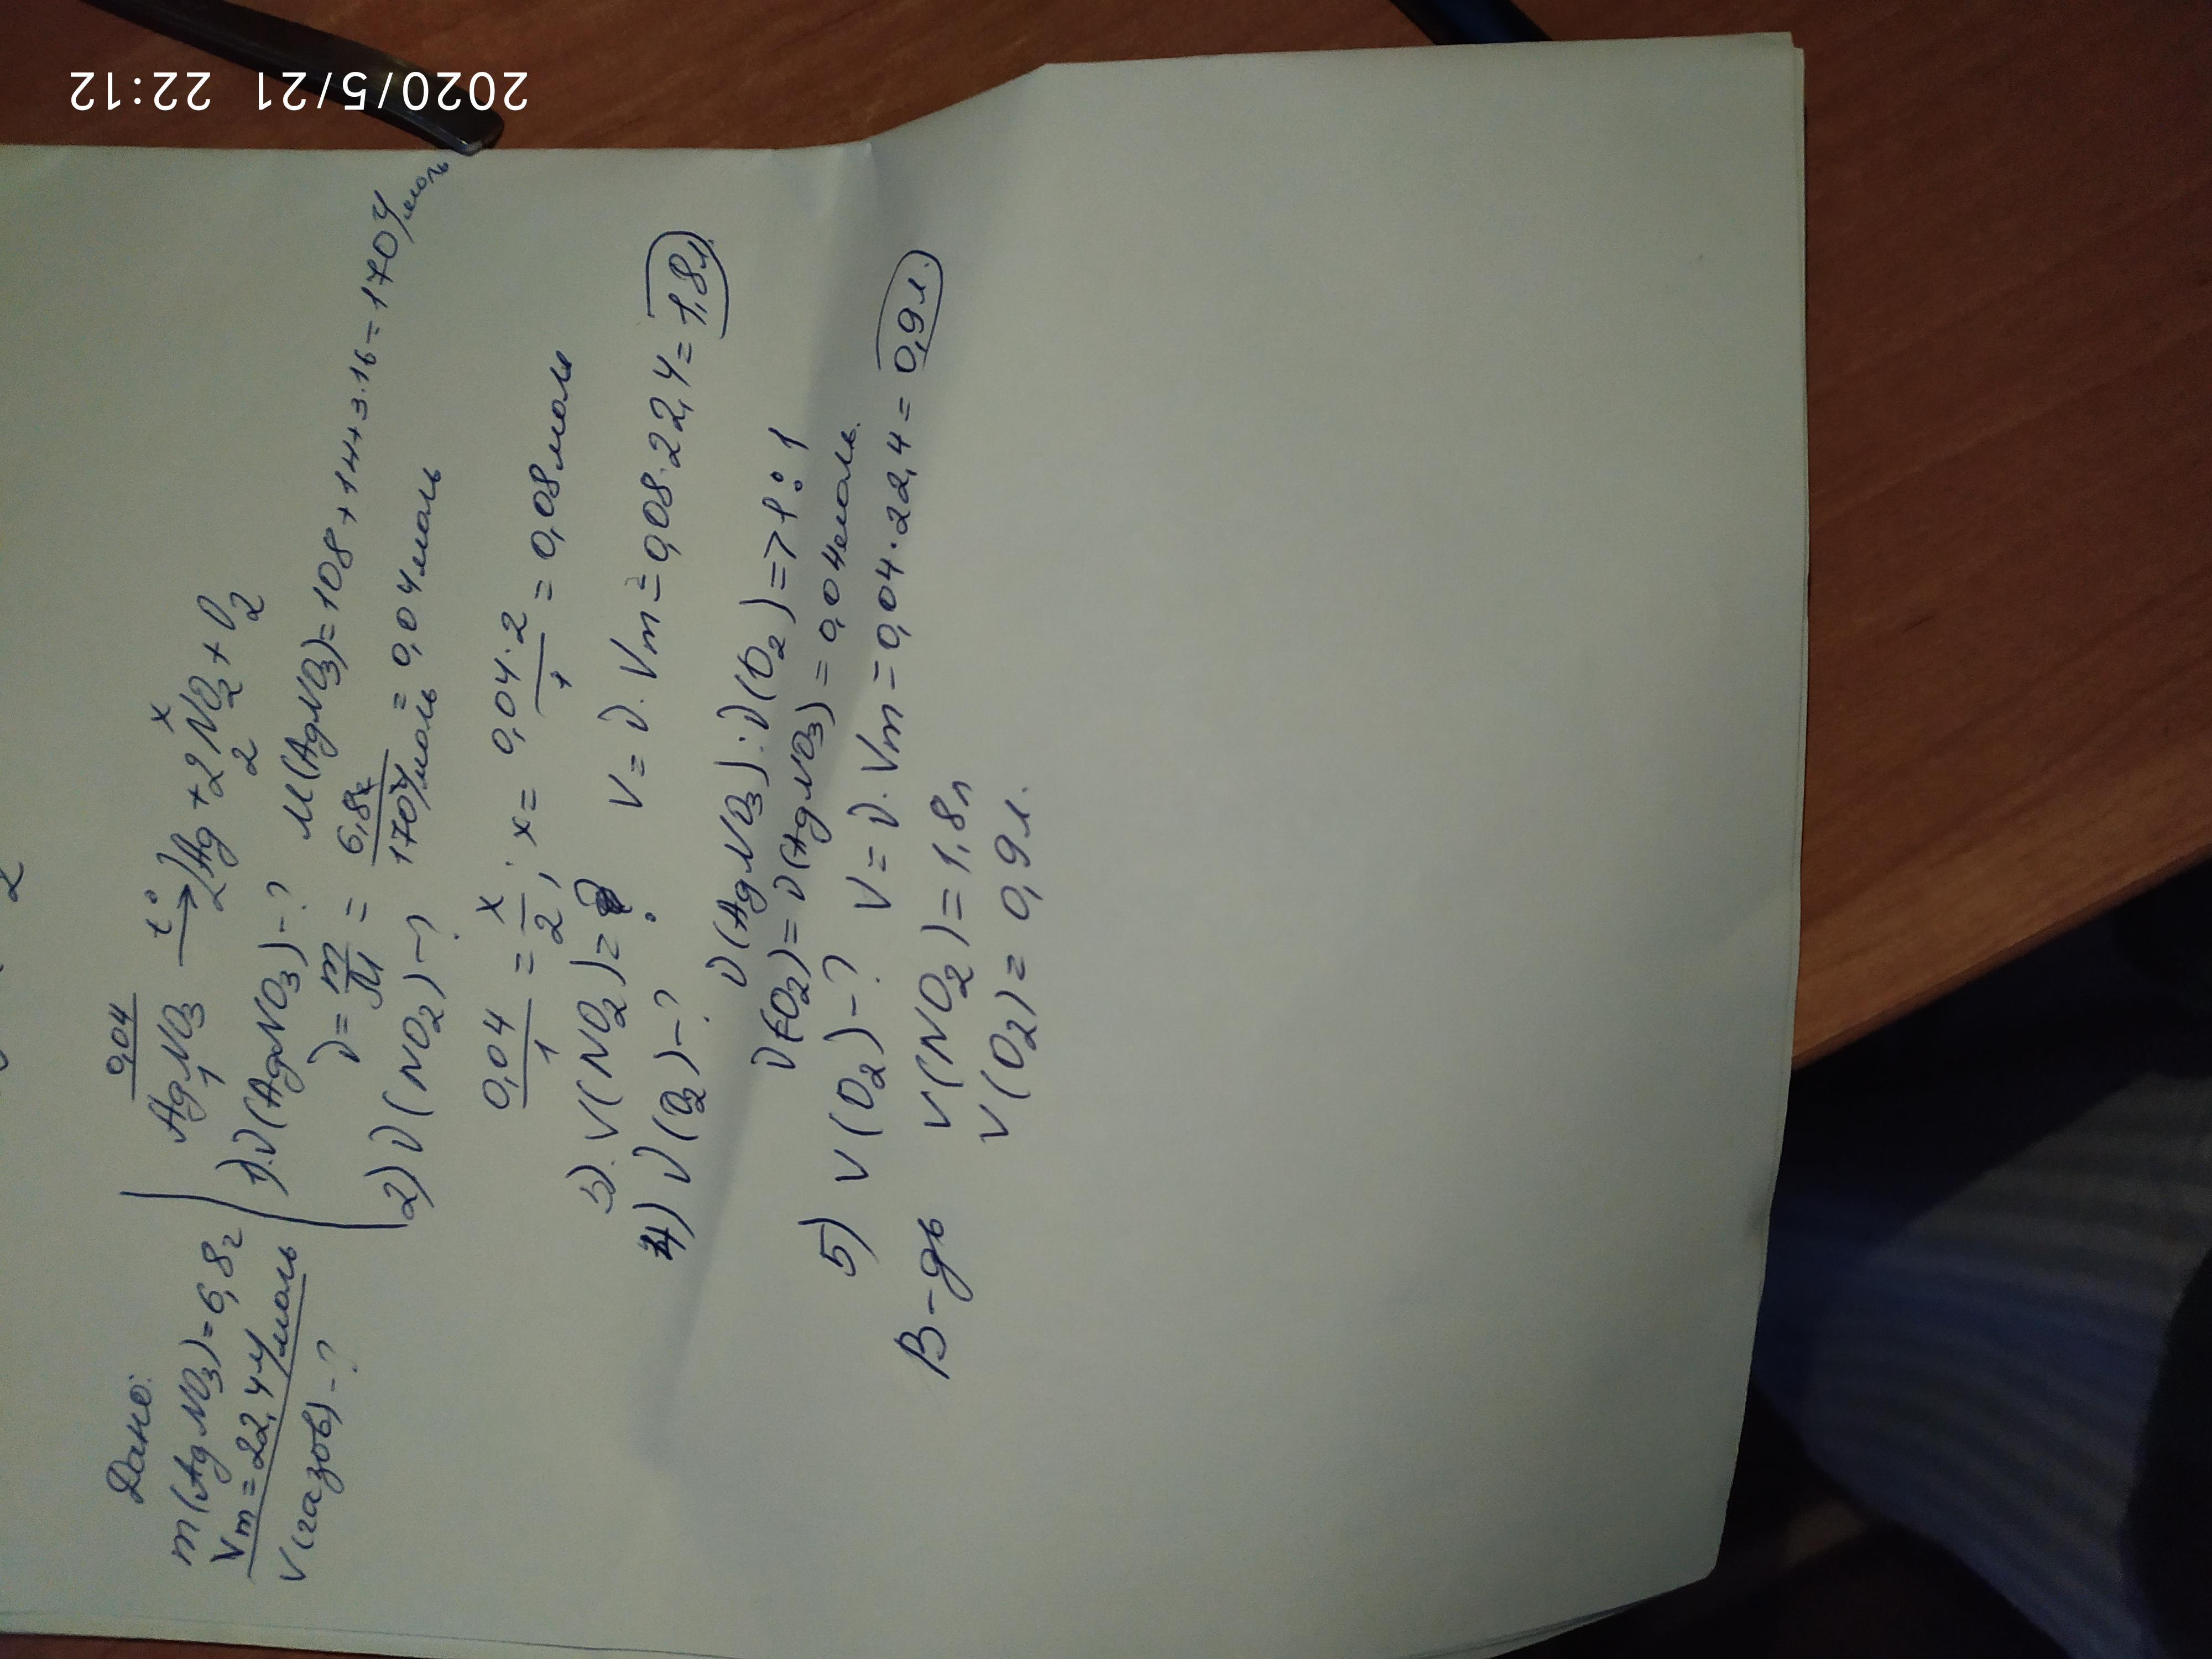 2020/5/21 22:12
Дано:
m(AgNO3)=6,8г
Vm=22,4л/моль
V(газов)-?
0,04 x
AgNO3 t°→ 2Ag+2NO2+O2
1 2 2
1) ν(AgNO3)-? M(AgNO3)=108+14+3·16=170г/моль
ν=m/M = 6,8г/170г/моль = 0,04моль
2) ν(NO2)-?
0,04/1 = x/2; x= 0,04·2/1 = 0,08моль
3) V(NO2)=? V=ν·Vm=0,08·22,4=1,8л
4) ν(O2)-?
ν(AgNO3):ν(O2)=>1:1
ν(O2)=ν(AgNO3)=0,04моль.
5) V(O2)-? V=ν·Vm=0,04·22,4=0,9л.
В-дь V(NO2)=1,8л
V(O2)=0,9л.